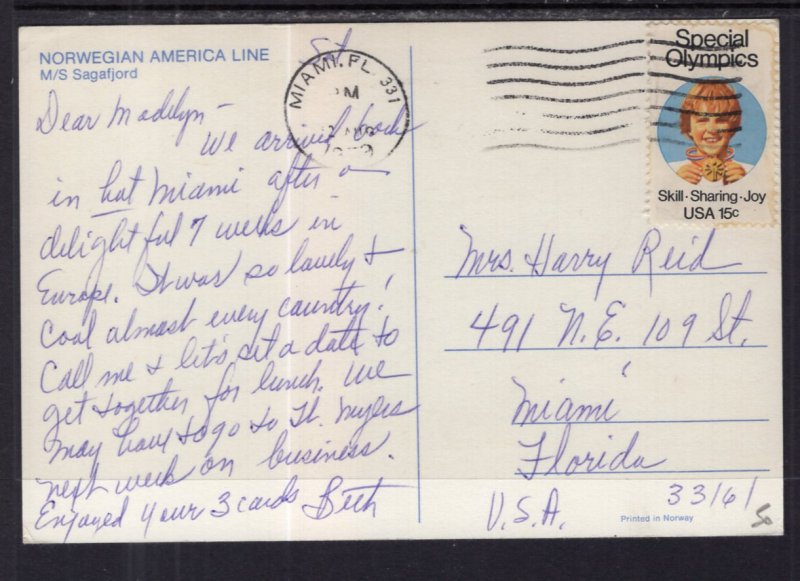 NORWEGIAN AMERICA LINE
M/S Sagafjord
Dear Madelyn -
We arrived back
in hot Miami after a
delightful 7 weeks in
Europe. It was so lovely &
cool almost every country!
Call me & let's set a date to
get together for lunch. We
may have to go to Ft. Myers
next week on business.
Enjoyed your 3 cards Beth
MIAMI, FL. 331
PM
1979
Special
Olympics
Skill·Sharing·Joy
USA 15c
Mrs. Harry Reid
491 N.E. 109 St.
Miami
Florida
33161
U.S.A.
Printed in Norway